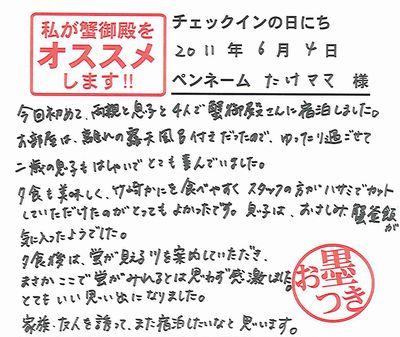 私が蟹御殿を
オススメ
します!!
チェックインの日にち
2011年6月4日
ペンネーム たけママ 様
今回初めて、両親と息子と4人で蟹御殿さんに宿泊しました。
お部屋は、離れの露天風呂付きだったので、ゆったり過ごせて
二歳の息子もはしゃいでとても喜んでいました。
夕食も美味しく、竹崎かにを食べやすく スタッフの方がハサミでカット
していただけたのがとってもよかったです。息子は、おさしみ、蟹釜飯が
気に入ったようでした。
夕食後は、蛍が見える川を案内していただき、
まさかここで蛍がみれるとは思わず感激しました。
とてもいい思い出になりました。
家族・友人を誘って、また宿泊したいなと思います。
お墨つき